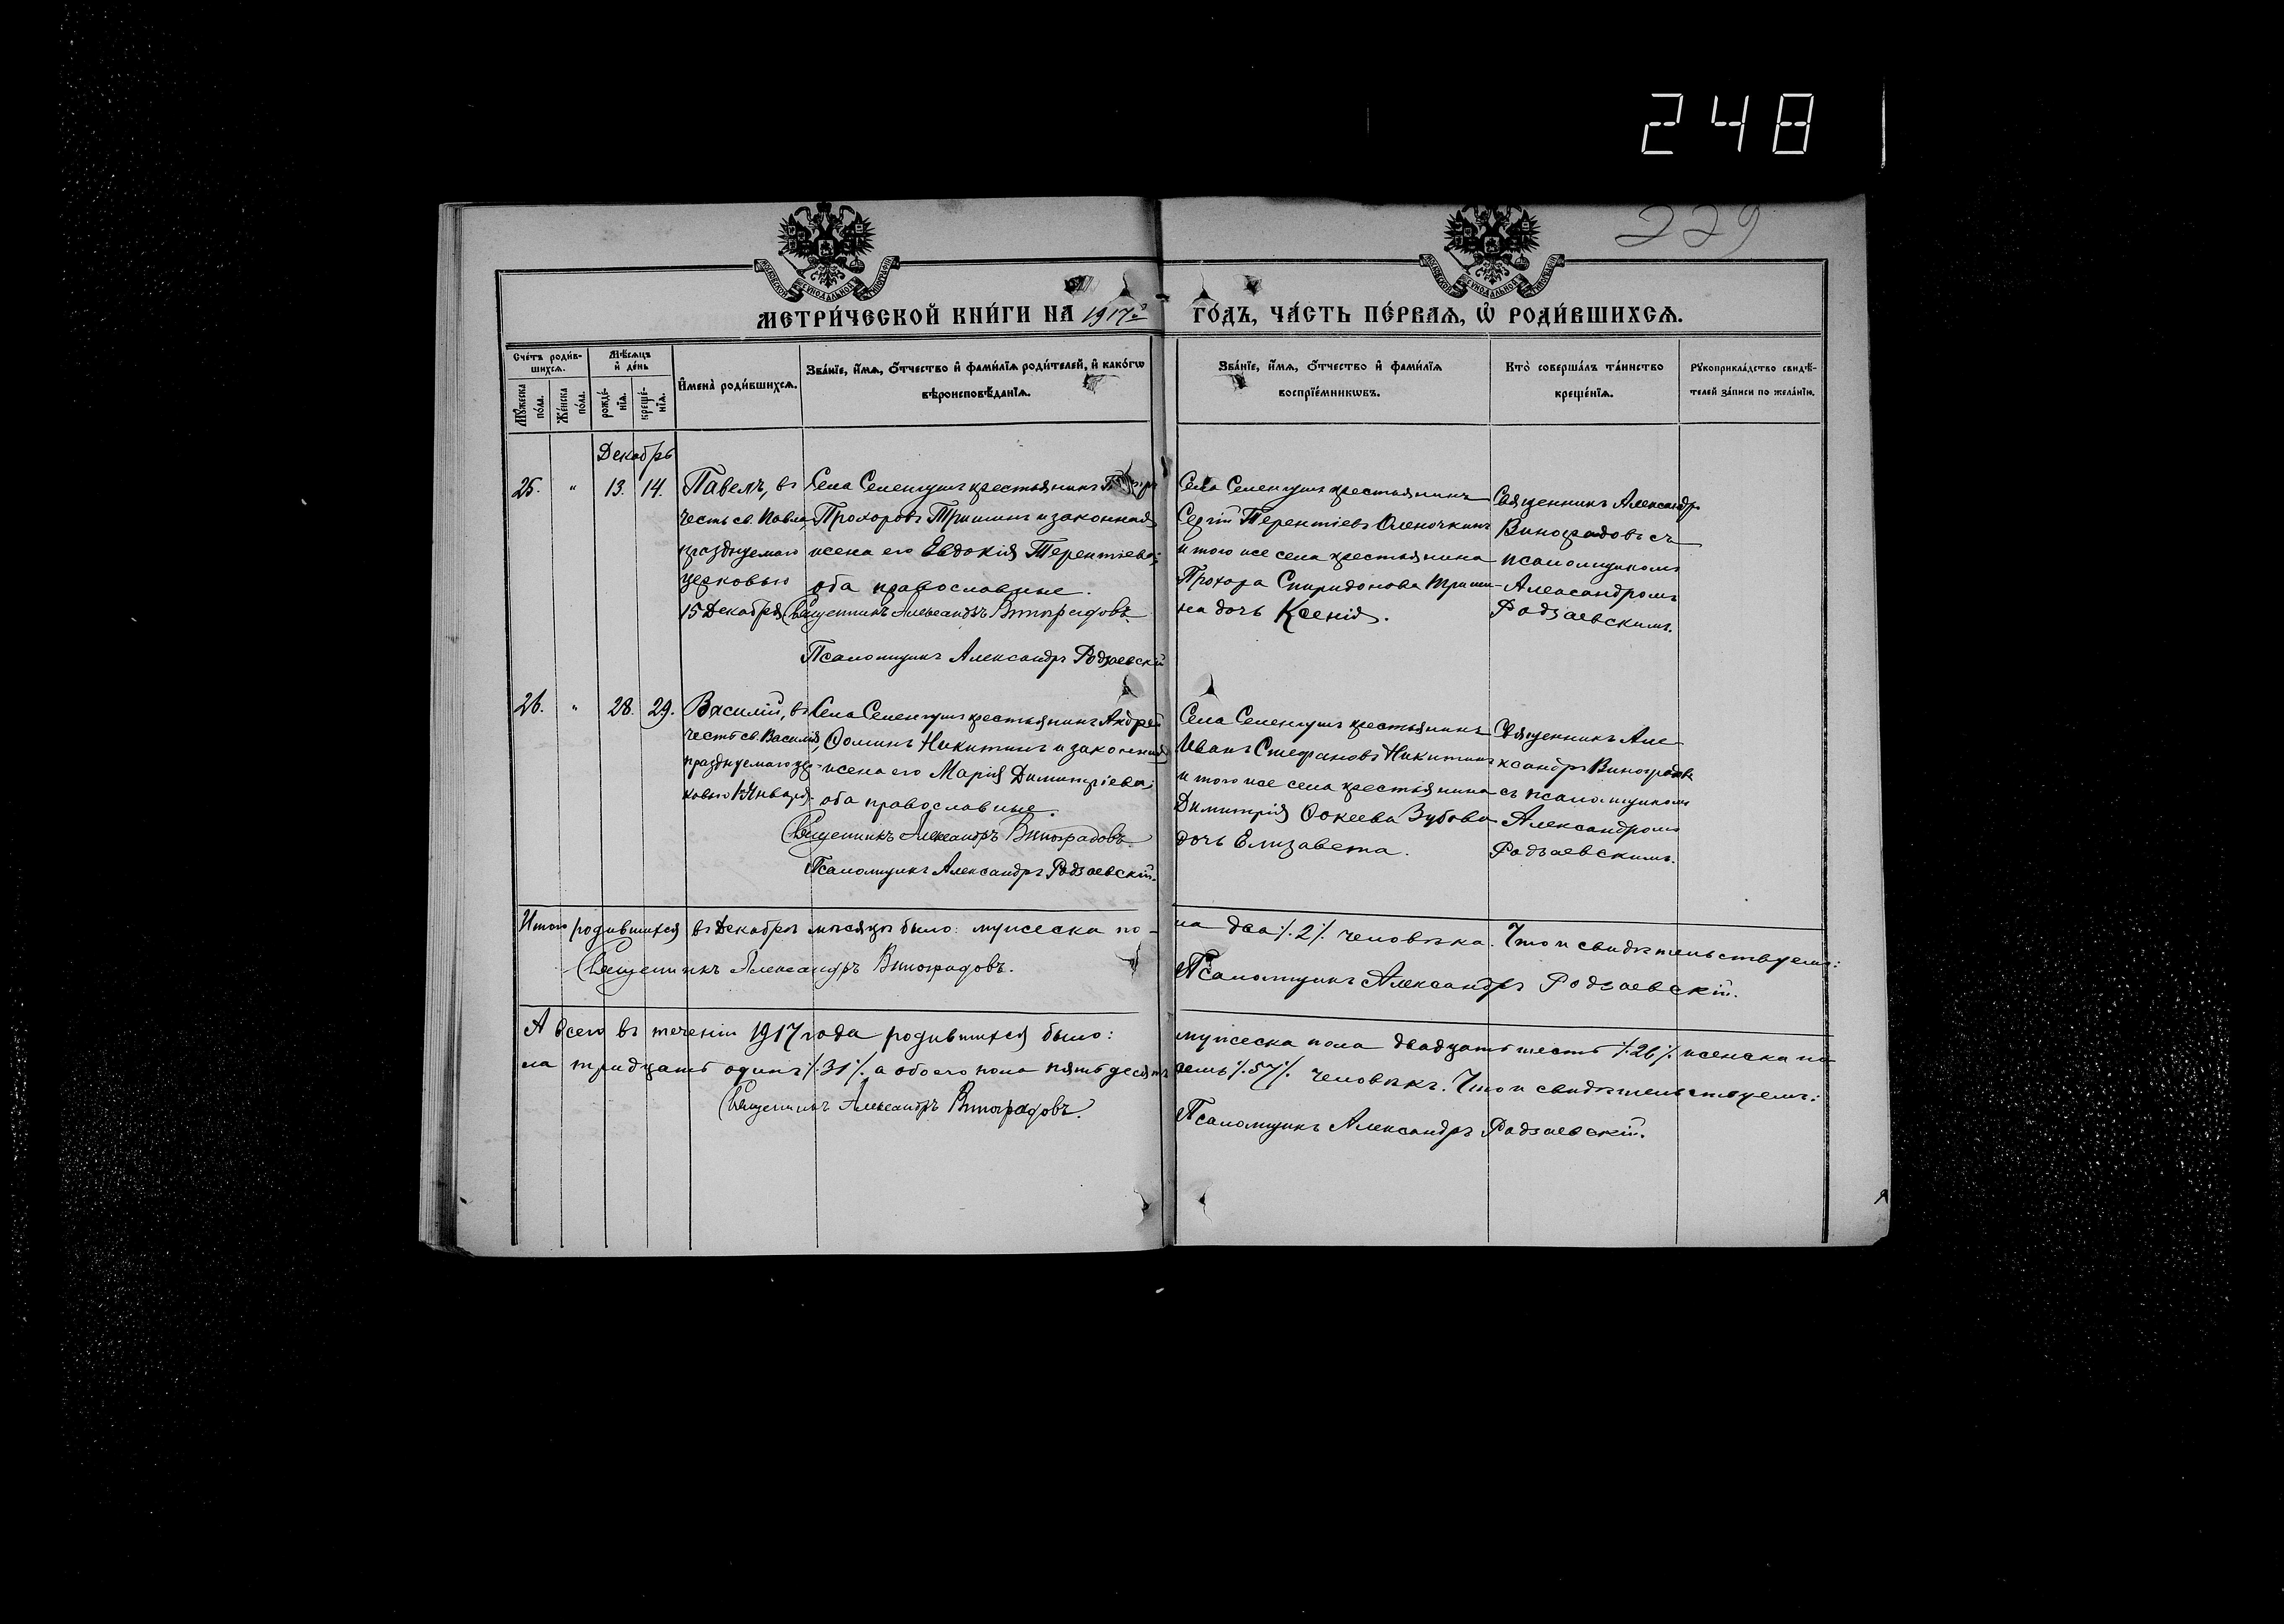 248
229
МОСКОВСКОЙ СѴНОДАЛЬНОЙ ТИПОГРАФІИ
МОСКОВСКОЙ СѴНОДАЛЬНОЙ ТИПОГРАФІИ
МЕТРИ́ЧЕСКОЙ КНИ́ГИ НА 1917й ГО́ДЪ, ЧА́СТЬ ПЕ́РВАѦ, Ѡ҆ РОДИ́ВШИХСѦ.
Сче́тъ роди́в-
шихсѧ.
Мѣ́сѧцъ
и҆ де́нь
Мꙋ́жеска
по́ла.
Же́нска
по́ла.
рожде́-
нїѧ.
креще́-
нїѧ.
И҆мена̀ роди́вшихсѧ.
Зва́нїе, и҆́мѧ, ѻ҆́тчество и҆ фами́лїѧ роди́телей, и҆ како́гѡ
вѣроисповѣ́данїѧ.
Зва́нїе, и҆́мѧ, ѻ҆́тчество и҆ фами́лїѧ
воспрїе́мникѡвъ.
Кто̀ соверша́лъ та́инство
креще́нїѧ.
Рꙋкоприкла́дство свидѣ́-
телей за́писи по жела́нїю.
Декабрь
25. " 13. 14.
Павелъ, въ
честь св. Павла,
празднуемаго
церковью
15 Декабря
Села Селенгушъ крестьянинъ
Прохоровъ Тришинъ и законная
жена его Евдокія Терентіева;
оба православные.
Священникъ Александръ Виноградовъ.
Псаломщикъ Александръ Родзаевскій
Села Селенгушъ крестьянинъ
Сергій Терентіевъ Оленочкинъ
и того же села крестьянина
Прохора Спиридонова Триши-
на дочь Ксенія.
Священникъ Александръ
Виноградовъ съ
псаломщикомъ
Александромъ
Родзаевскимъ.
26. " 28. 29.
Василій, въ
честь св. Василія,
празднуемаго цер-
ковью 1 Января.
Села Селенгушъ крестьянинъ Андрей
Ѳоминъ Никитинъ и законная
жена его Марія Димитріева;
оба православные.
Священникъ Александръ Виноградовъ.
Псаломщикъ Александръ Родзаевскій.
Села Селенгушъ крестьянинъ
Иванъ Стефановъ Никитинъ
и того же села крестьянина
Димитрія Ѳокеева Зубова
дочь Елизавета.
Священникъ Але-
ксандръ Виноградовъ
съ псаломщикомъ
Александромъ
Родзаевскимъ.
Итого родившихся въ Декабрѣ мѣсяцѣ было: мужеска по-
ла два ./.2./. человѣка. Что и свидѣтельствуемъ:
Священникъ Александръ Виноградовъ.
Псаломщикъ Александръ Родзаевскій.
А всего въ теченіи 1917 года родившихся было: мужеска пола двадцать шесть ./.26./. женска по-
ла тридцать одинъ ./.31./. а обоего пола пятьдесятъ семь ./.57./. человѣкъ. Что и свидѣтельствуемъ:
Священникъ Александръ Виноградовъ.
Псаломщикъ Александръ Родзаевскій.